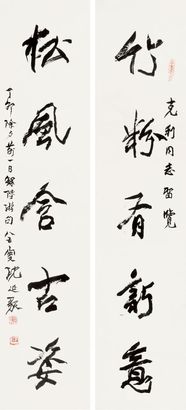 竹粉有新意
克利同志留覽
松風含古姿
丁卯除夕前一日錄陸游句 八五叟沈延毅